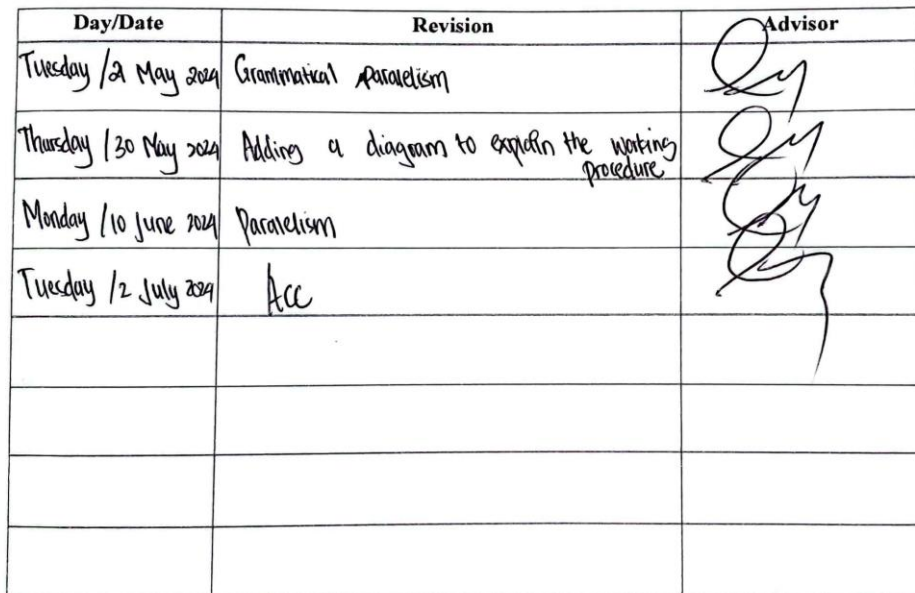 Day/Date Revision Advisor
Tuesday /21 May 2024 Grammatical paralelism
Thursday /30 May 2024 Adding a diagram to explain the working
procedure
Monday /10 June 2024 Paralelism
Tuesday /2 July 2024 Acc